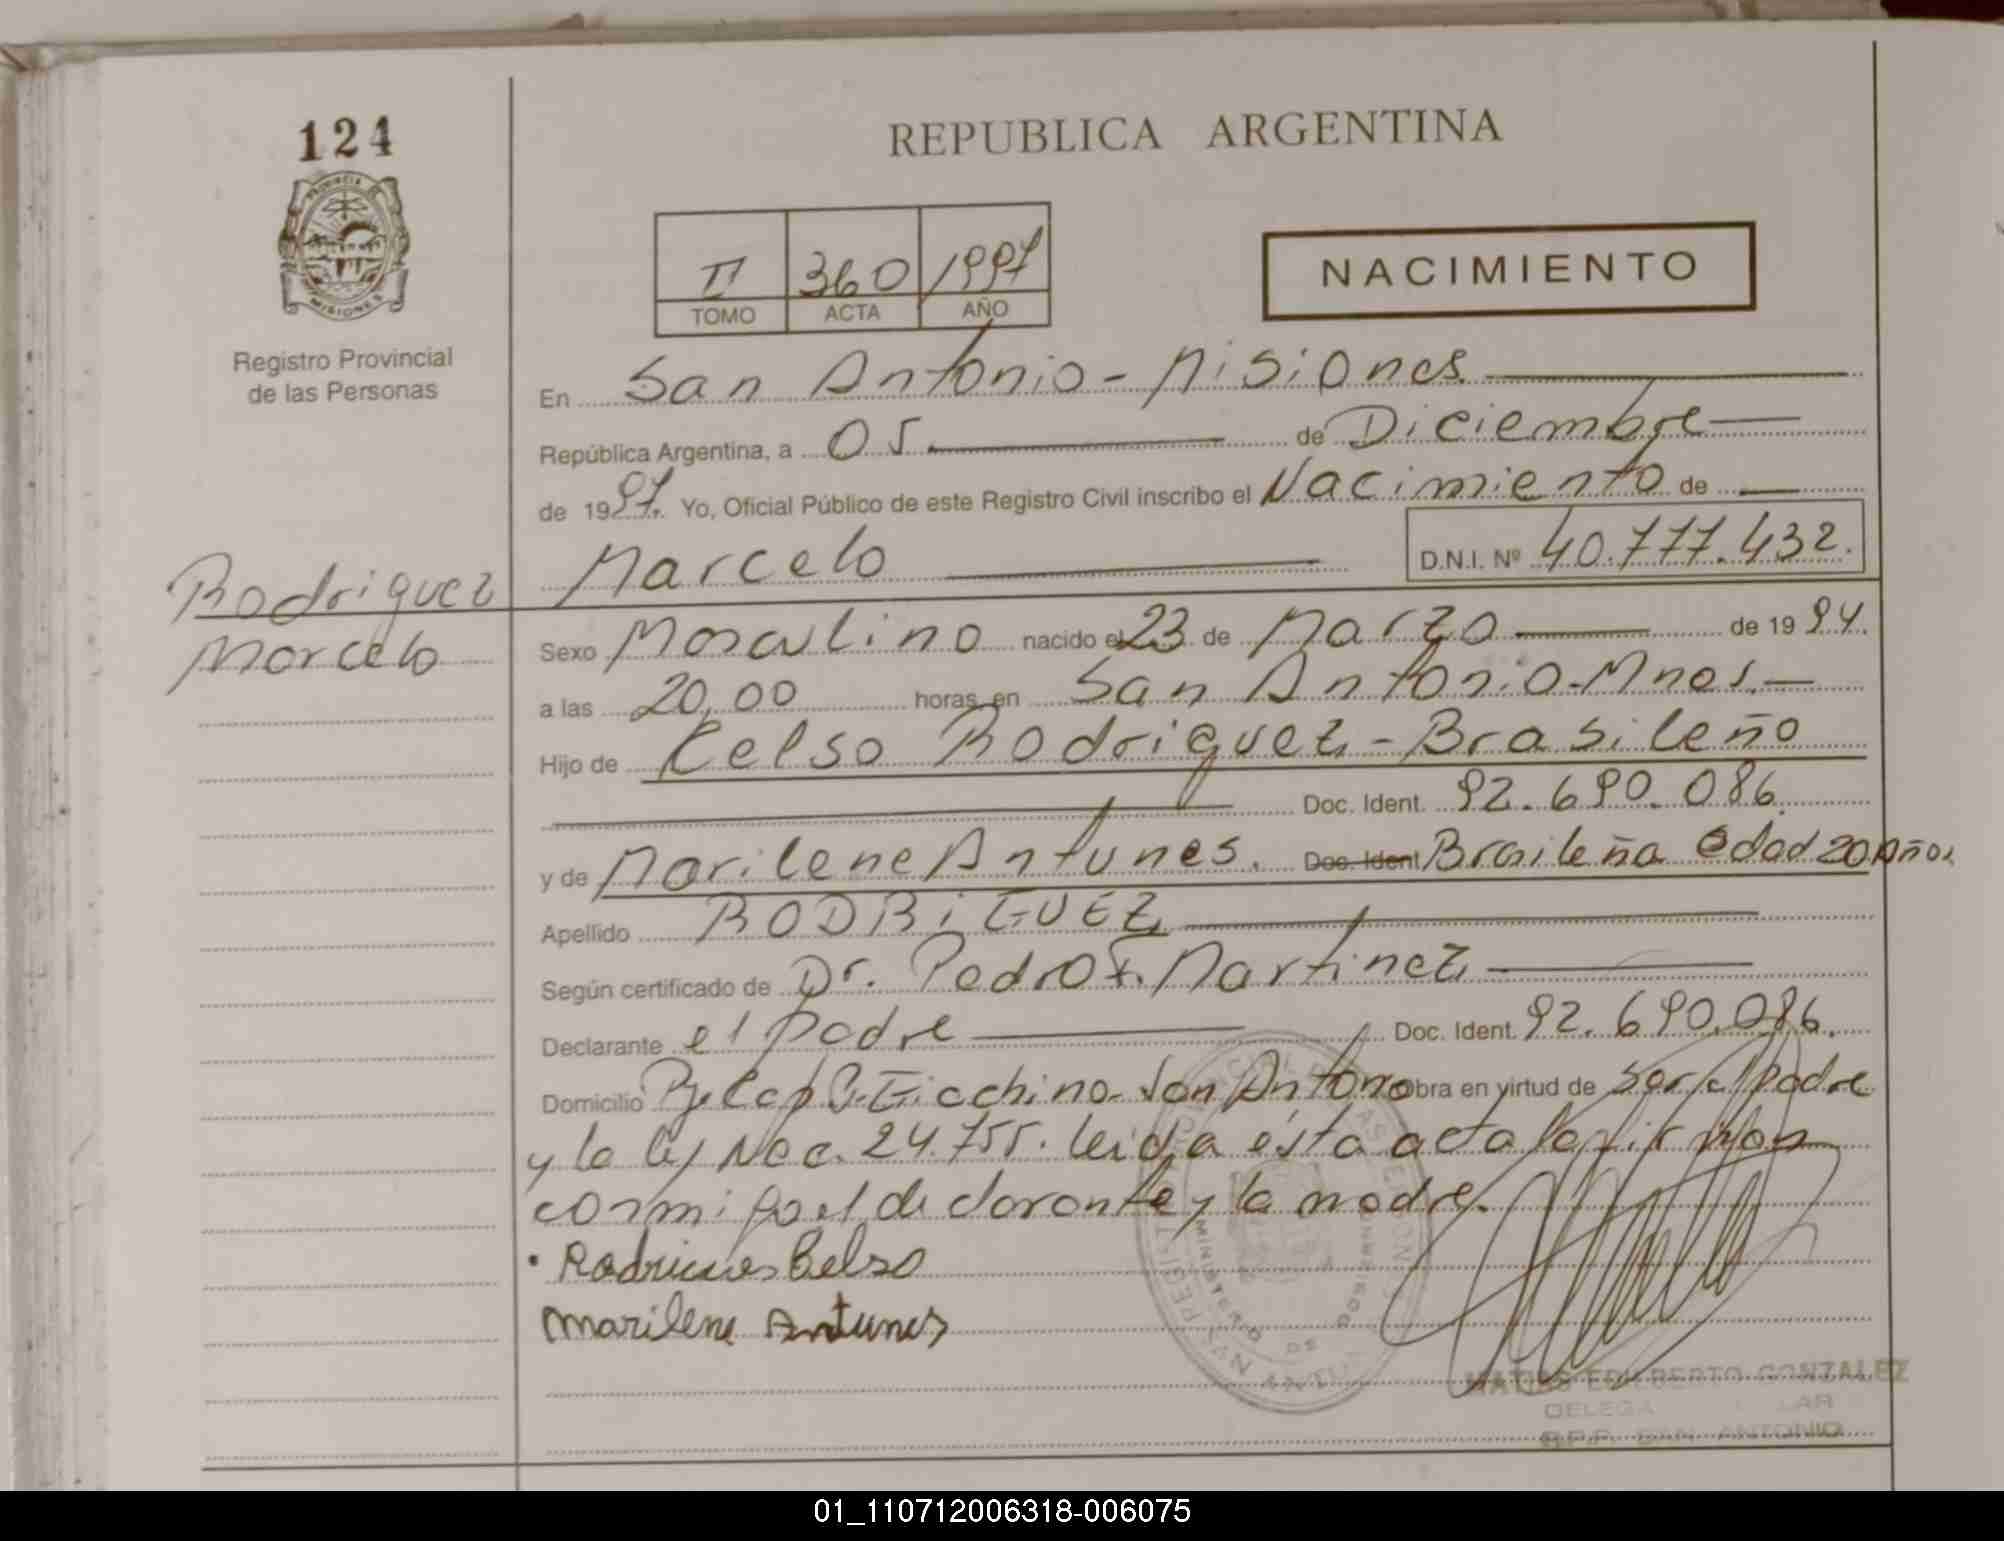 124
REPUBLICA ARGENTINA
PROVINCIA DE MISIONES
II 360 1997
TOMO ACTA AÑO
NACIMIENTO
Registro Provincial
de las Personas
En San Antonio - Misiones
República Argentina, a 05 de Diciembre
de 1997. Yo, Oficial Público de este Registro Civil inscribo el Nacimiento de
Marcelo D.N.I. Nº 40.777.432.
Rodriguez
Marcelo
Sexo Masculino nacido el 23 de Marzo de 1994.
a las 20,00 horas en San Antonio-Mnes.
Hijo de Celso Rodriguez - Brasileño
Doc. Ident. 92.690.086
y de Marilene Antunes. Doc. Ident Brasileña edad 20 Años
Apellido RODRIGUEZ
Según certificado de Dr. Pedro F. Martinez
Declarante el padre Doc. Ident. 92.690.086.
Domicilio Giachino San Antonio Obra en virtud de ser el padre
y la ley Nac. 24.755. leida ésta acta la firman
conmigo el declarante y la madre.
Rodrigues Celso
Marilene Antunes
MINISTERIO DE GOBIERNO
MATIAS EDILBERTO GONZALEZ
R.P.P. SAN ANTONIO
01_110712006318-006075